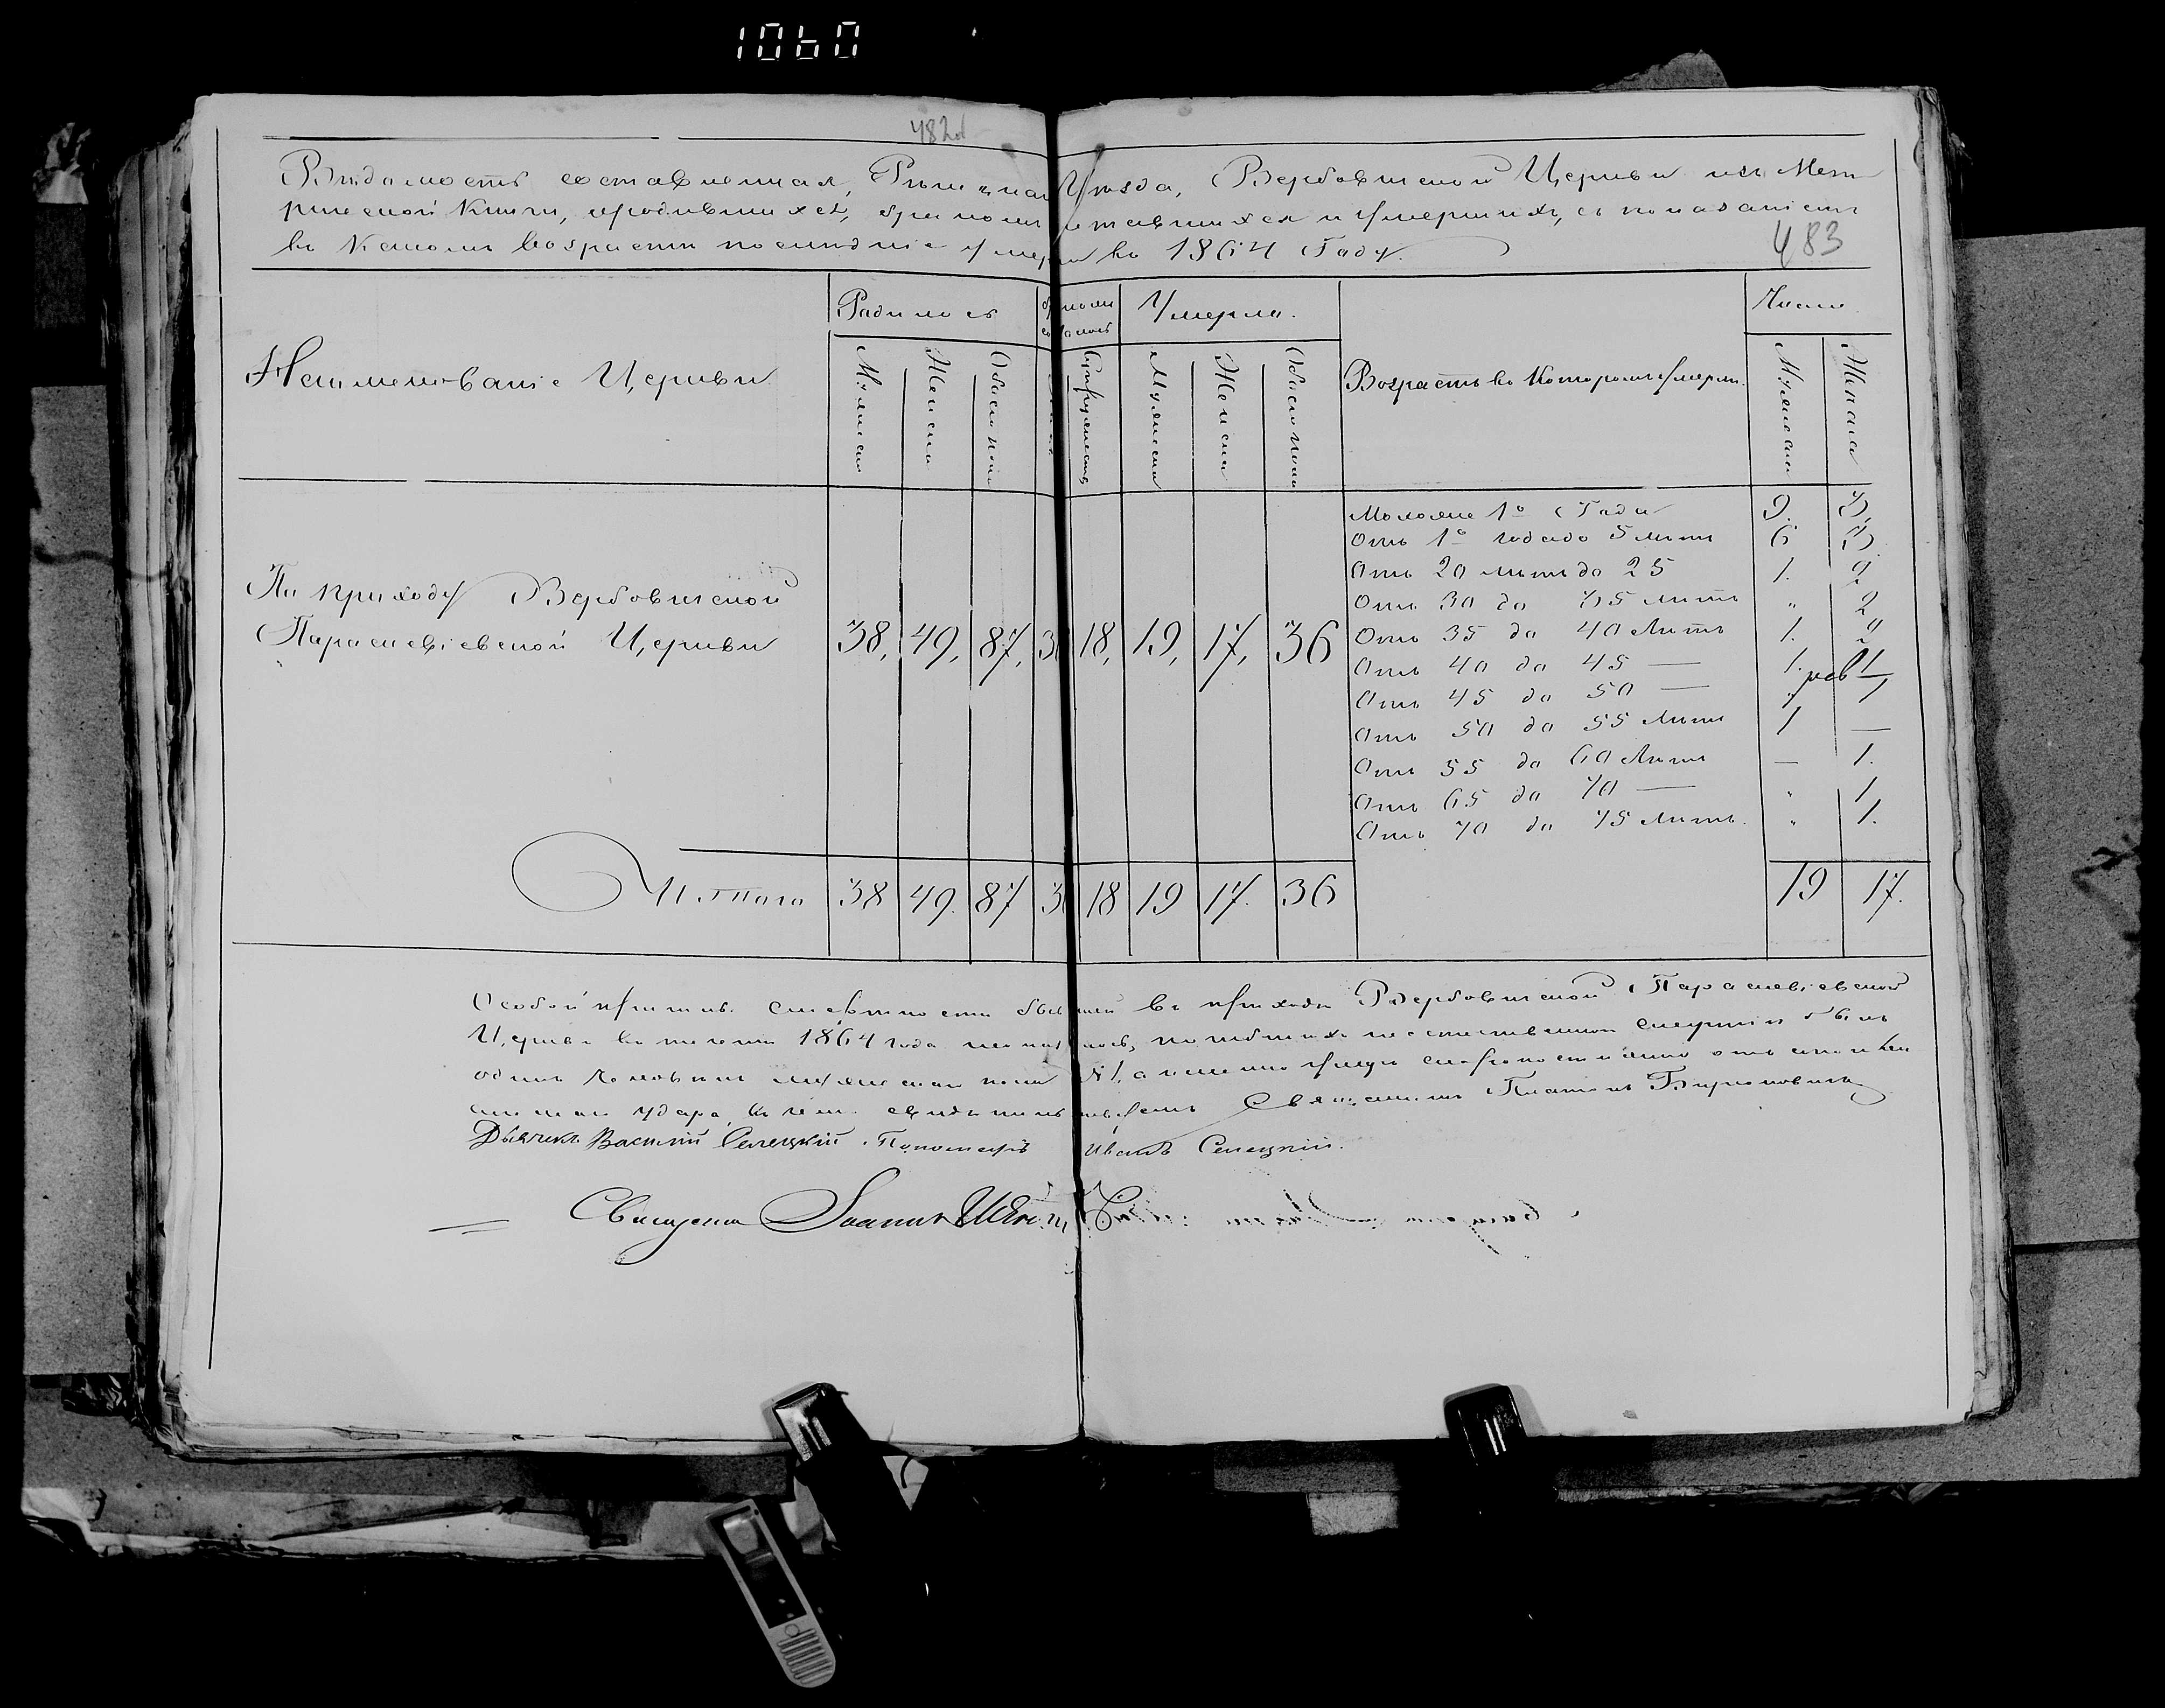 1060
482об
Вѣдомость составленная, Уѣзда, Вербовецкой Церкви изъ Мет
рической Книги, о родившихся, бракомъ сочетавшихся и умершихъ, съ показаніемъ
въ какомъ возрастѣ послѣдніе умерли въ 1864 Году.
483
Наименованіе Церкви
Родилось
бракомъ
сочеталось
Умерло.
Возрастъ въ которомъ умерли.
Число.
Мужеска
Женска
Обоего пола
Супружествъ
Мужеска
Женска
Обоего пола
Мужеска
Женска
По приходу Вербовецкой
Параскевіевской Церкви
38, 49, 87, 18, 19, 17, 36
Моложе 1º Года 9. 3.
Отъ 1º года до 5 лѣтъ 6 3.
Отъ 20 лѣтъ до 25 1. 2
Отъ 30 до 35 лѣтъ " 2
Отъ 35 до 40 Лѣтъ 1. "
Отъ 40 до 45 — 1. 1
Отъ 45 до 50 — 1
Отъ 50 до 55 Лѣтъ 1 —
Отъ 55 до 60 Лѣтъ — 1.
Отъ 65 до 70 — " 1.
Отъ 70 до 75 Лѣтъ. " 1.
Итого 38 49. 87 18 19 17. 36 19 17.
Особой причины смертности бывшей въ приходѣ Вербовецкой Параскевіевской
Церкви въ теченіи 1864 года не смертію былъ
одинъ человѣкъ мужескаго пола №1, а именно умеръ скоропостижно отъ
удара, въ чемъ свидѣтельствуемъ Священникъ Платонъ
Дьячекъ Василій Селецкій. Пономарь Иванъ Селецкій.
Священникъ Іоаннъ